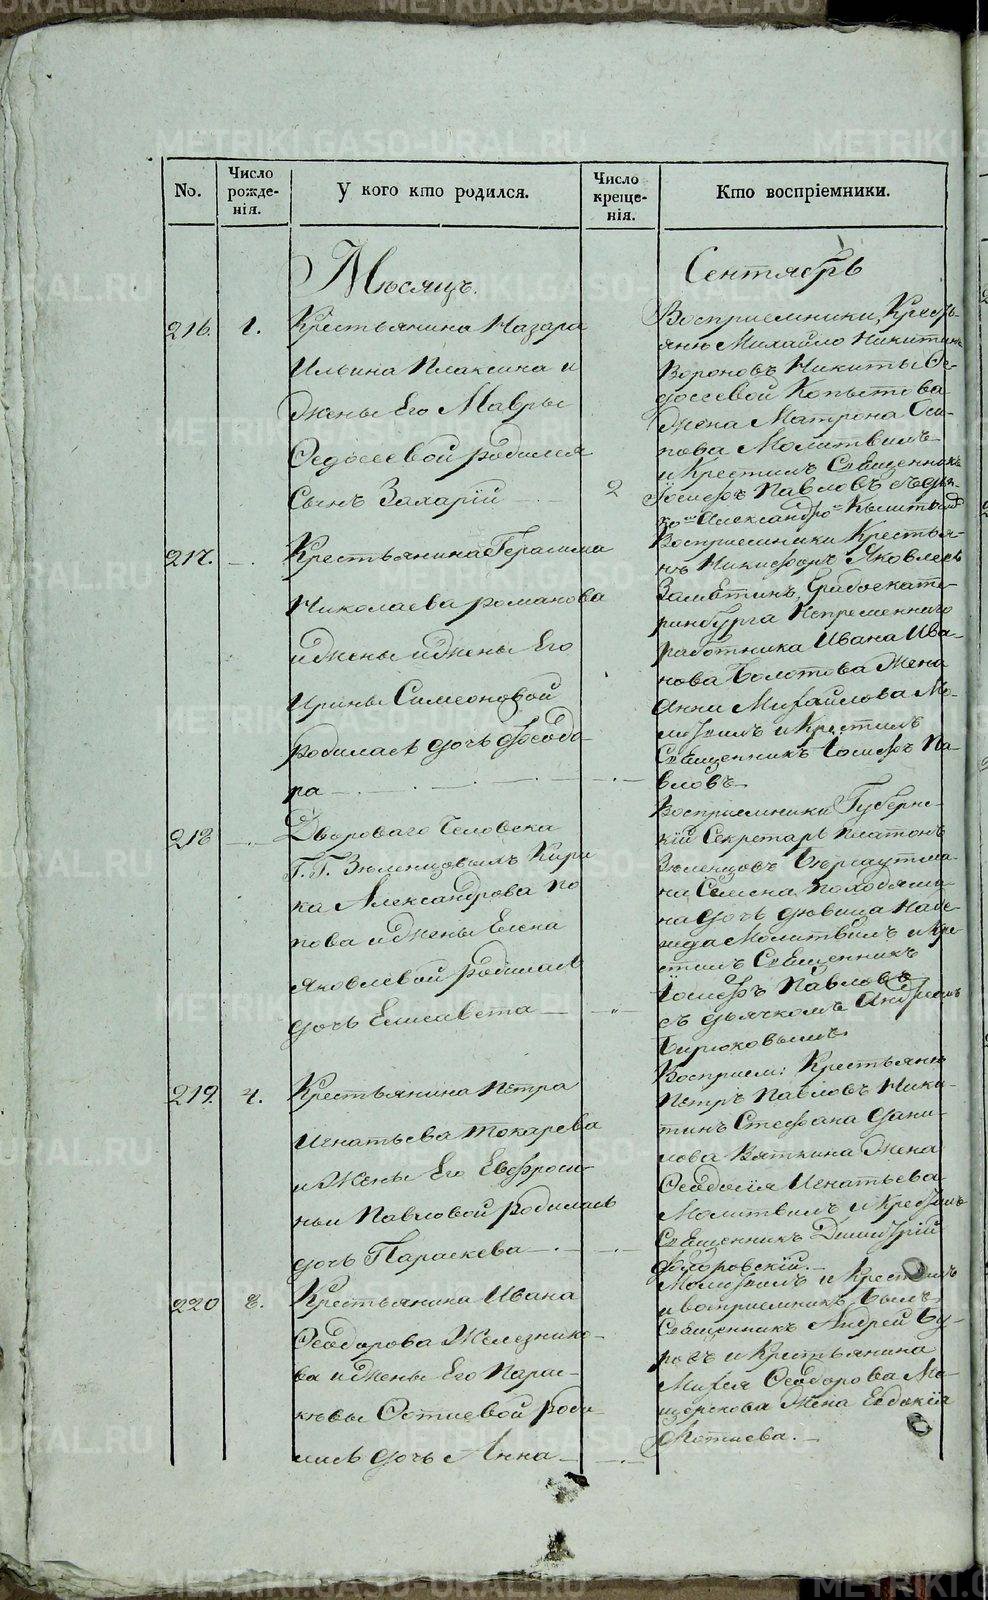 METRIKI.GASO-URAL.RU
No.
Число рожде-нія.
У кого кто родился.
Число креще-нія.
Кто воспріемники.
Мѣсяцъ.
Сентябрь
216. 1.
Крестьянина Назара
Ильина Плаксина и
жены Его Мавры
Ѳедосеевой родился
Сынъ Захарій
2
Восприемники, Кресть-
янъ Михайло Никитинъ
Вороновъ Никиты Ѳе-
досеевой Копытова
жена Матрона Оси-
пова Молитвилъ
и Крестилъ Священникъ
Іосифъ Павловъ
217.
Крестьянина Герасима
Николаева романова
и жены и жены Его
Ирины Симеоновой
родилась дочь Ѳеодо-
ра
Восприемники Крестья-
нъ Никифоръ Яковлевъ
Замѣтинъ, Градоекате-
ринбурга Непременнаго
работника Ивана Ива-
нова Болотова жена
Анна Михайлова Мо-
литвилъ и Крестилъ
Священникъ Іосифъ Па-
вловъ
218
Двороваго Человека
Г. Г. Зеленцовымъ Кири
ка Александрова По
пова и жены Елена
Яковлевой родилась
дочь Елисавета
Восприемники Губернс-
кій Секретарь Платонъ
Зеленцовъ
на Семена Походяши-
на дочь девица Наде-
жда Молитвилъ и кре
стилъ Священникъ
Іосифъ Павловъ
съ дьячкомъ Андреемъ
Бирюковымъ
219. 4.
Крестьянина Петра
Игнатьева токарева
и жены Его Евфроси-
ньи Павловой родилась
дочь Параскева
Восприем: Крестьянъ
Петръ Павловъ Ники-
тинъ Стефана Дани-
лова Вяткина жена
Ѳеодосія Игнатьева
Молитвилъ и Крестилъ
Священникъ Димитрій
Флоровскій.
220 8.
Крестьянина Ивана
Ѳеодорова Железнико-
ва и жены Его Парас-
кевы Фотиевой роди-
лась дочь Анна
Молитвилъ и Крестилъ
и восприемникъ былъ
Священникъ Андрей Бу-
ровъ и Крестьянина
Михея Ѳеодорова Ма-
щерскова жена Евдокія
Фотиева.